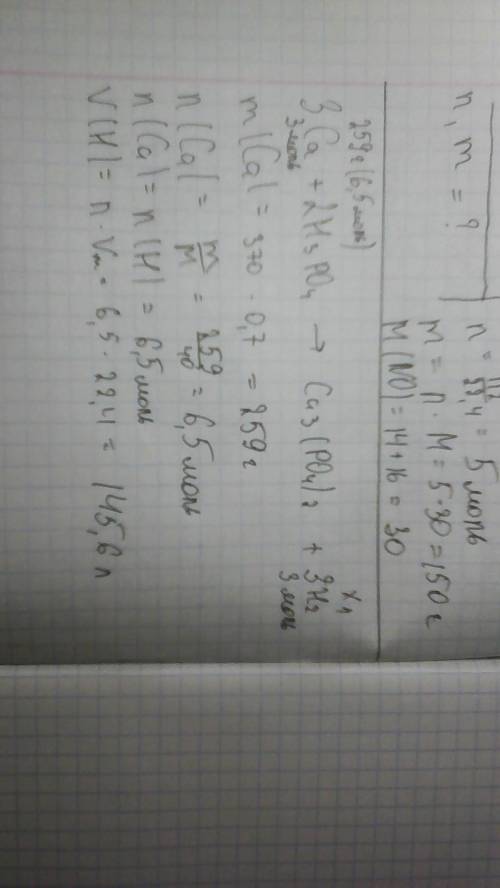 n, m = ?
n = 112/22,4 = 5 моль
m = n · M = 5·30 = 150 г
M(NO) = 14+16 = 30
259 г (6,5 моль) x л
3Ca + 2H3PO4 → Ca3(PO4)2 + 3H2
3 моль 3 моль
m(Ca) = 370 · 0,7 = 259 г
n(Ca) = m/M = 259/40 = 6,5 моль
n(Ca) = n(H) = 6,5 моль
V(H) = n · Vm = 6,5 · 22,4 = 145,6 л